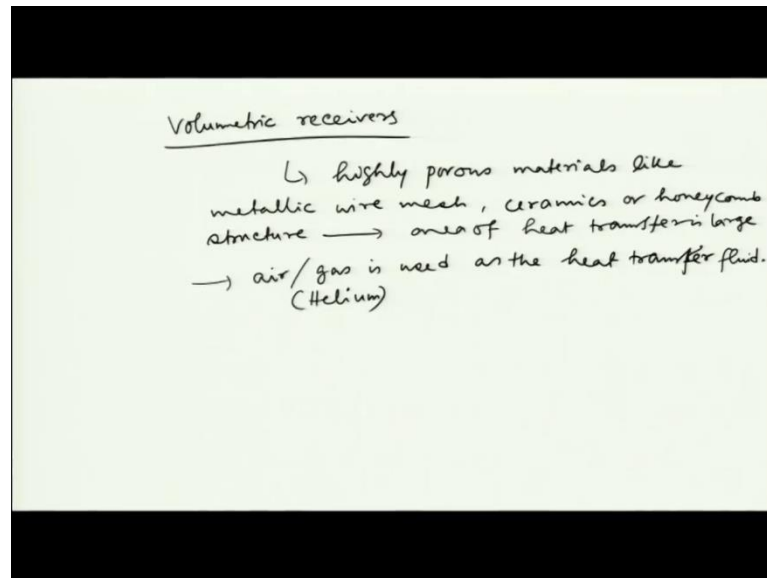 Volumetric receivers
↳ highly porous materials like
metallic wire mesh, ceramics or honeycomb
structure → area of heat transfer is large
→ air/gas is used as the heat transfer fluid.
(Helium)